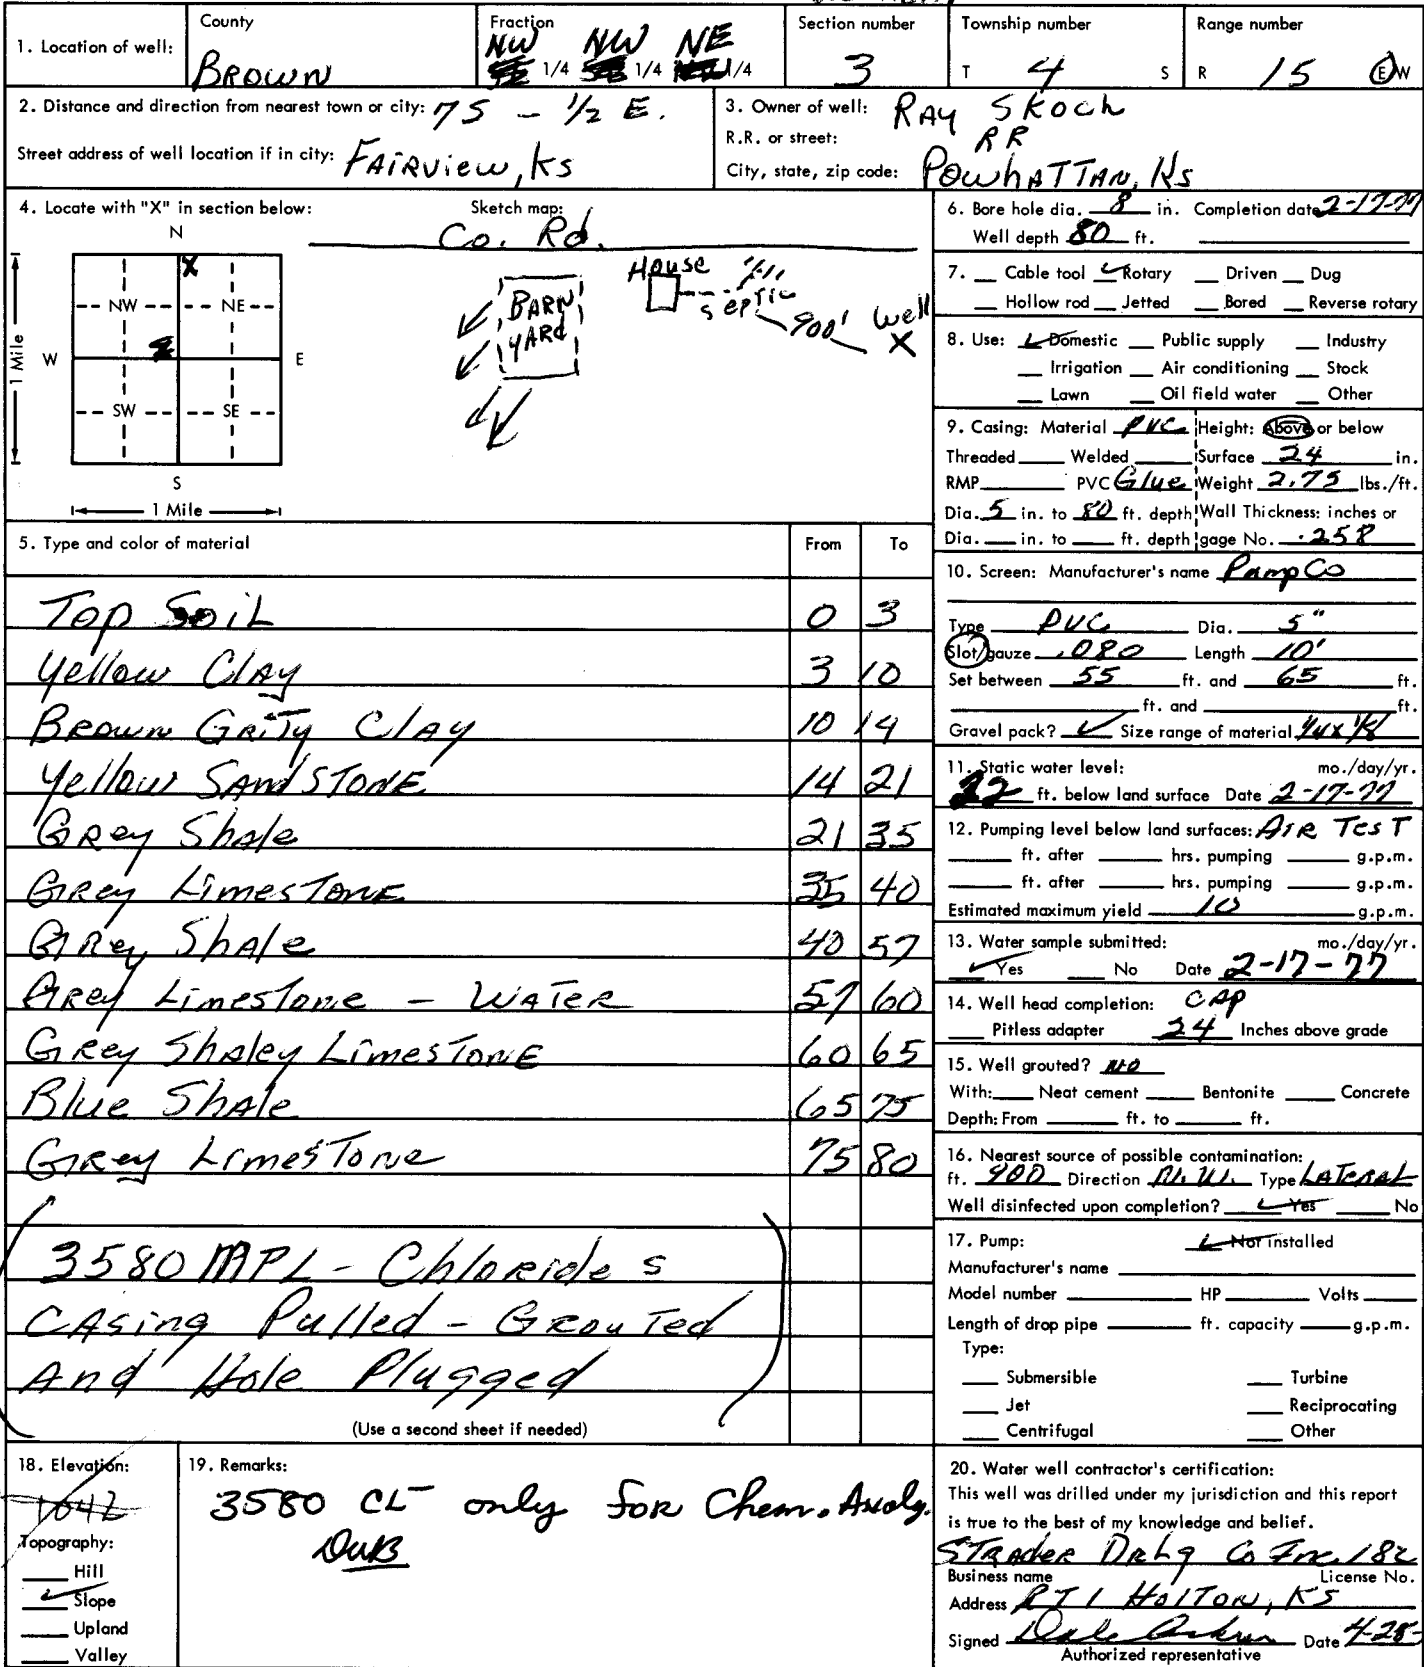 1. Location of well:
County
Brown
Fraction
NW NW NE
1/4 1/4 1/4
Section number
3
Township number
T 4 S
Range number
R 15 E W
2. Distance and direction from nearest town or city: 7S - 1/2 E.
Street address of well location if in city: Fairview, Ks
3. Owner of well: Ray Skoch
R.R. or street: RR
City, state, zip code: Powhattan, Ks
4. Locate with "X" in section below:
N
X
NW NE
W E
SW SE
S
1 Mile
1 Mile
Sketch map:
Co. Rd.
Barn Yard
House
Septic
900'
Well
X
5. Type and color of material From To
Top Soil 0 3
Yellow Clay 3 10
Brown Grity Clay 10 14
Yellow Sandstone 14 21
Grey Shale 21 35
Grey Limestone 35 40
Grey Shale 40 57
Grey Limestone - Water 57 60
Grey Shaley Limestone 60 65
Blue Shale 65 75
Grey Limestone 75 80
(3580 MPL - Chlorides
Casing Pulled - Grouted
And Hole Plugged)
(Use a second sheet if needed)
6. Bore hole dia. 8 in. Completion date 2-17-77
Well depth 80 ft.
7. Cable tool ✓ Rotary Driven Dug
Hollow rod Jetted Bored Reverse rotary
8. Use: ✓ Domestic Public supply Industry
Irrigation Air conditioning Stock
Lawn Oil field water Other
9. Casing: Material PVC Height: Above or below
Threaded Welded Surface 24 in.
RMP PVC Glue Weight 2.75 lbs./ft.
Dia. 5 in. to 80 ft. depth Wall Thickness: inches or
Dia. in. to ft. depth gage No. .258
10. Screen: Manufacturer's name PampCo
Type PVC Dia. 5"
Slot/gauze .080 Length 10'
Set between 55 ft. and 65 ft.
ft. and ft.
Gravel pack? ✓ Size range of material 1/4 x 1/8
11. Static water level: mo./day/yr.
22 ft. below land surface Date 2-17-77
12. Pumping level below land surfaces: Air Test
ft. after hrs. pumping g.p.m.
ft. after hrs. pumping g.p.m.
Estimated maximum yield 10 g.p.m.
13. Water sample submitted: mo./day/yr.
✓ Yes No Date 2-17-77
14. Well head completion: Cap
Pitless adapter 24 Inches above grade
15. Well grouted? No
With: Neat cement Bentonite Concrete
Depth: From ft. to ft.
16. Nearest source of possible contamination:
ft. 900 Direction N.W. Type Lateral
Well disinfected upon completion? ✓ Yes No
17. Pump: ✓ Not installed
Manufacturer's name
Model number HP Volts
Length of drop pipe ft. capacity g.p.m.
Type:
Submersible Turbine
Jet Reciprocating
Centrifugal Other
18. Elevation:
1042
Topography:
Hill
✓ Slope
Upland
Valley
19. Remarks:
3580 CL⁻ only for Chem. Analy.
20. Water well contractor's certification:
This well was drilled under my jurisdiction and this report
is true to the best of my knowledge and belief.
Strader Drlg Co Inc. 182
Business name License No.
Address RT 1 Holton, KS
Signed Date 4-28-
Authorized representative